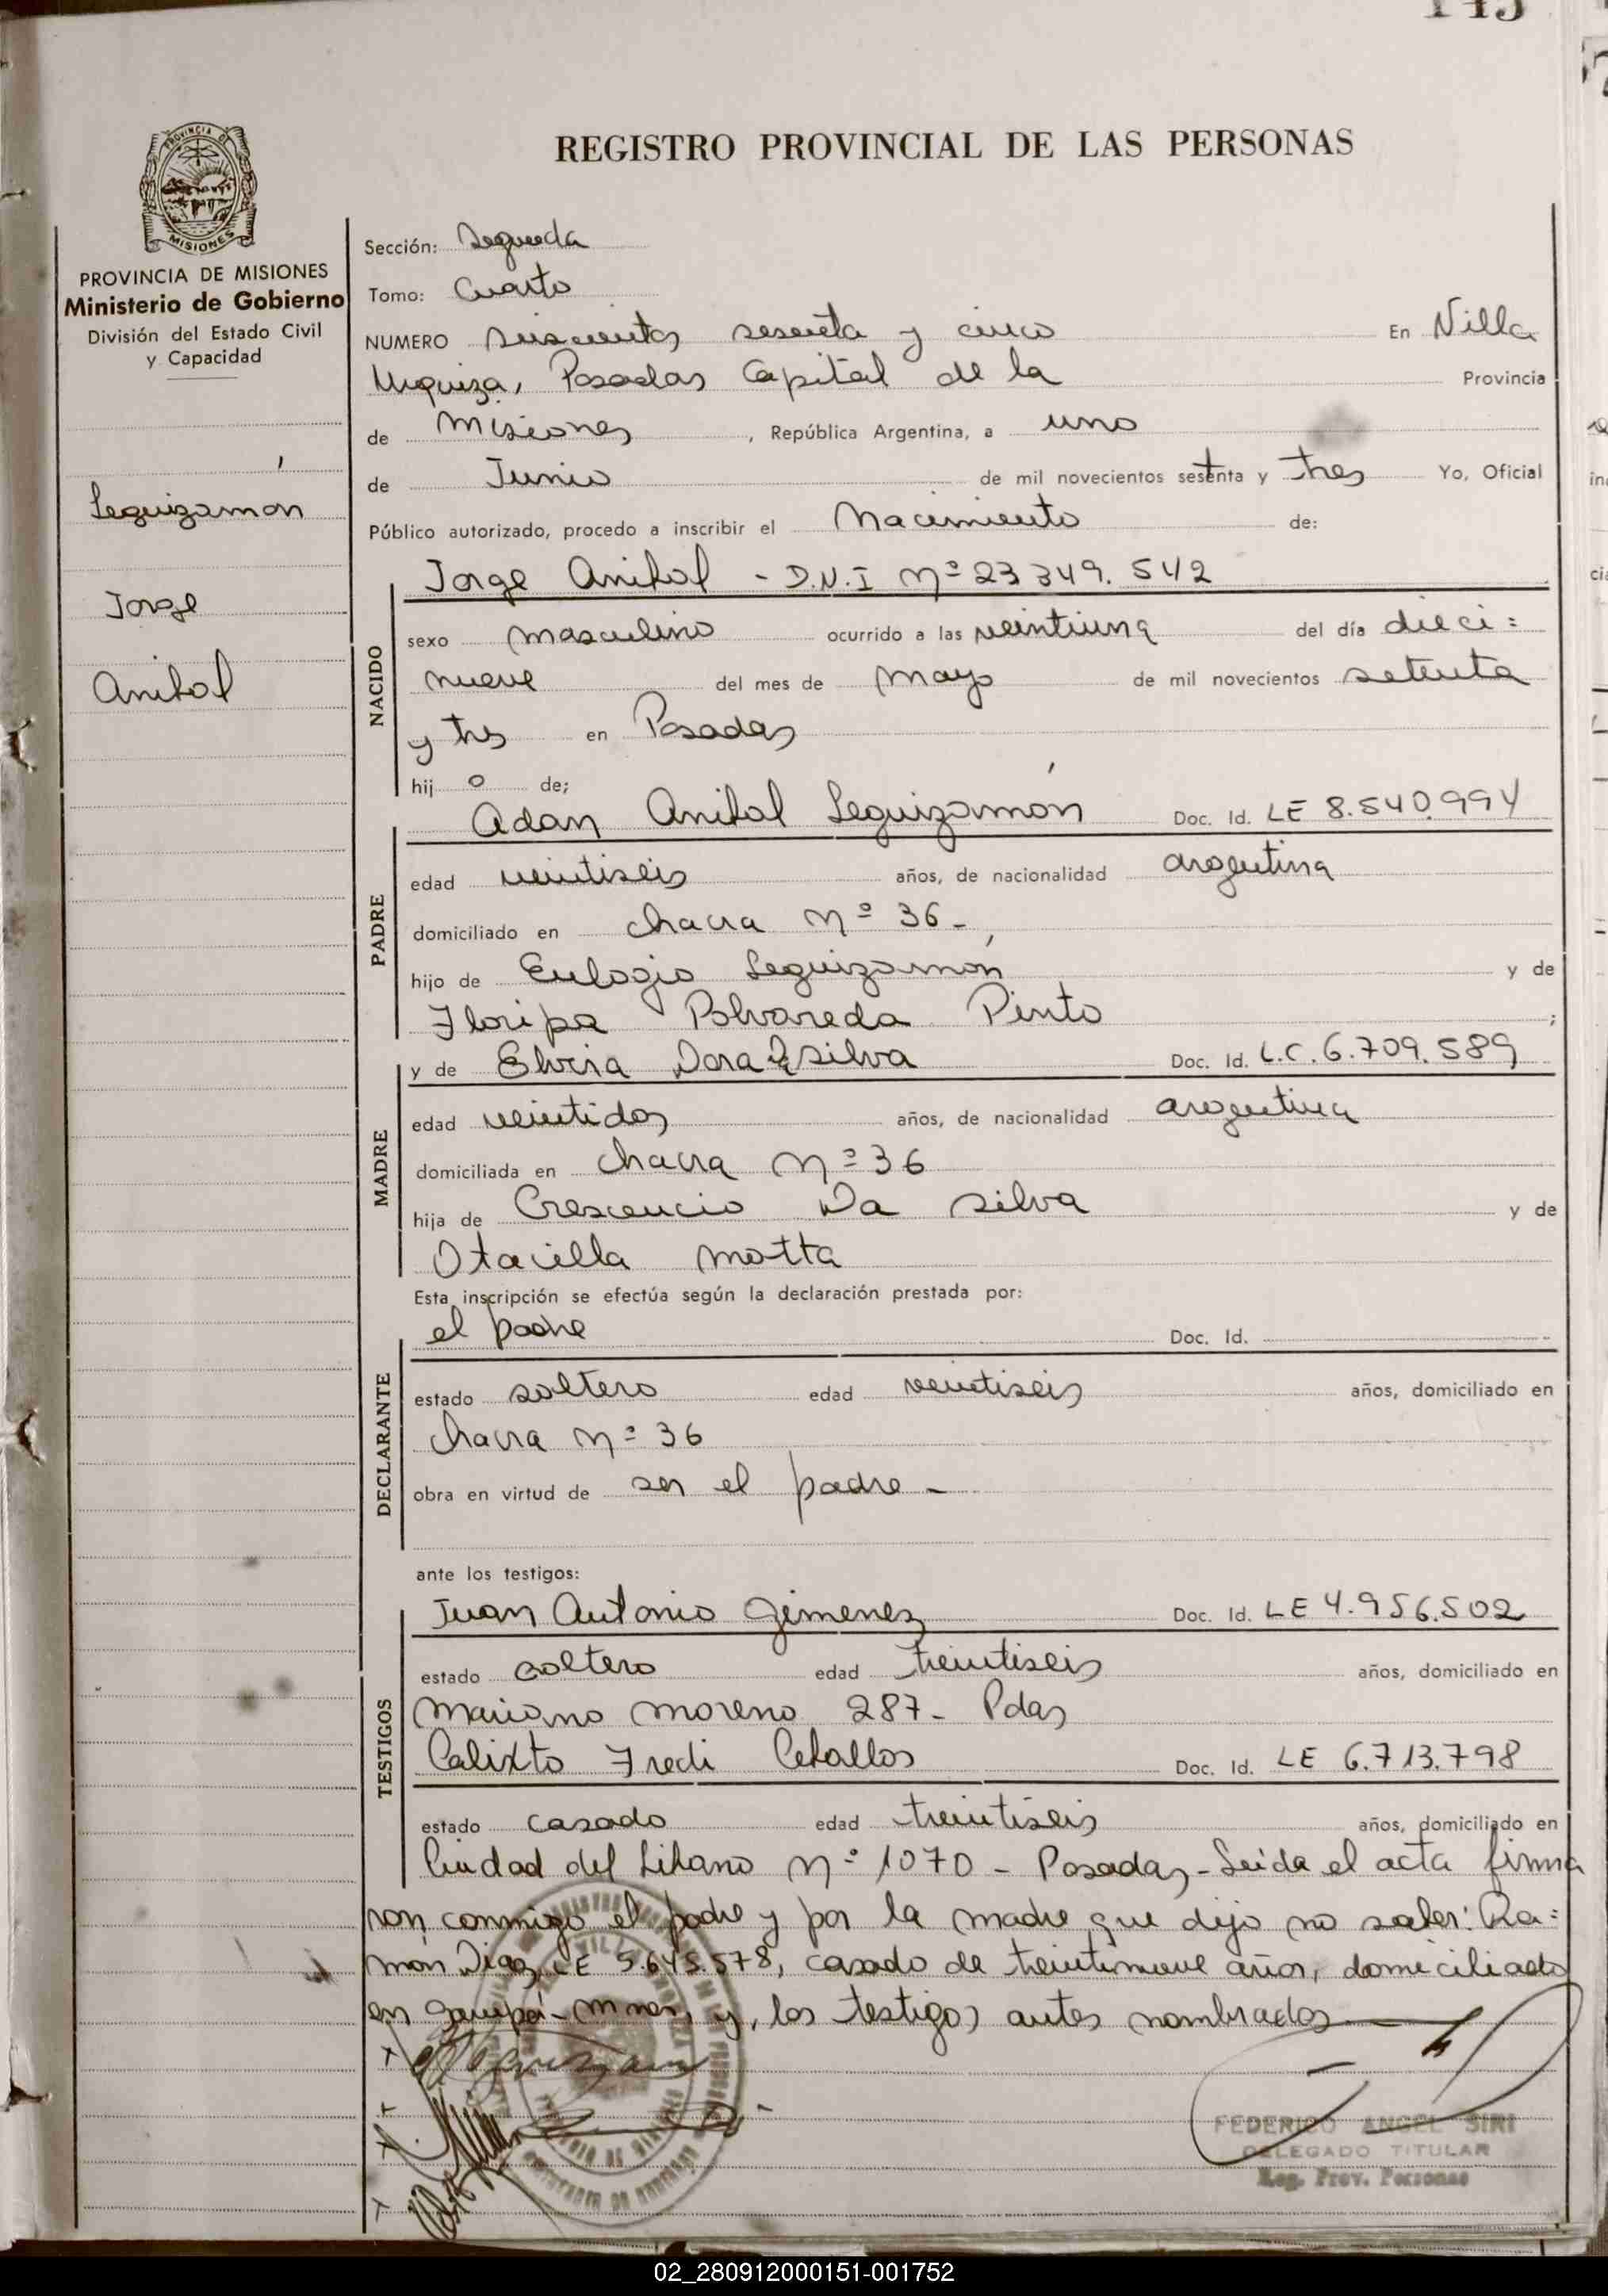 REGISTRO PROVINCIAL DE LAS PERSONAS
PROVINCIA DE MISIONES
Ministerio de Gobierno
División del Estado Civil
y Capacidad
Leguizamón
Jorge
Anibal
Sección: Segunda
Tomo: Cuarto
NUMERO Seiscientos sesenta y cinco En Villa
Urquiza, Posadas Capital de la Provincia
de Misiones, República Argentina, a uno
de Junio de mil novecientos setenta y tres Yo, Oficial
Público autorizado, procedo a inscribir el Nacimiento de:
NACIDO
Jorge Anibal - D.N.I Nº 23 349.542
sexo masculino ocurrido a las veintiuna del día dieci=
nueve del mes de mayo de mil novecientos setenta
y tres en Posadas
hijo de;
PADRE
Adan Anibal Leguizamón Doc. Id. LE 8.540.994
edad veintiseis años, de nacionalidad argentina
domiciliado en chacra Nº 36-
hijo de Eulogio Leguizamón y de
Floripa Polvareda Pinto ;
MADRE
y de Elvira Dora Da silva Doc. Id. L.C. 6.709.589
edad veintidos años, de nacionalidad argentina
domiciliada en chacra Nº 36
hija de Crescencio Da silva y de
Otacilla Motta
Esta inscripción se efectúa según la declaración prestada por:
DECLARANTE
el padre Doc. Id.
estado soltero edad veintiseis años, domiciliado en
chacra Nº 36
obra en virtud de ser el padre-
ante los testigos:
TESTIGOS
Juan Antonio Gimenez Doc. Id. LE 4.956.502
estado soltero edad treintiseis años, domiciliado en
Mariano Moreno 287- Pdas
Calixto Fredi Ceballos Doc. Id. LE 6.713.798
estado casado edad treintiseis años, domiciliado en
Ciudad del Libano Nº 1070 - Posadas - Leida el acta firma
ron conmigo el padre y por la madre que dijo no saber: Ra=
món Diaz LE 5.645.578, casado de treintinueve años, domiciliado
en Garupá- Mnes, y, los testigos antes nombrados
FEDERICO ANGEL SIRI
DELEGADO TITULAR
Reg. Prov. Personas
02_280912000151-001752